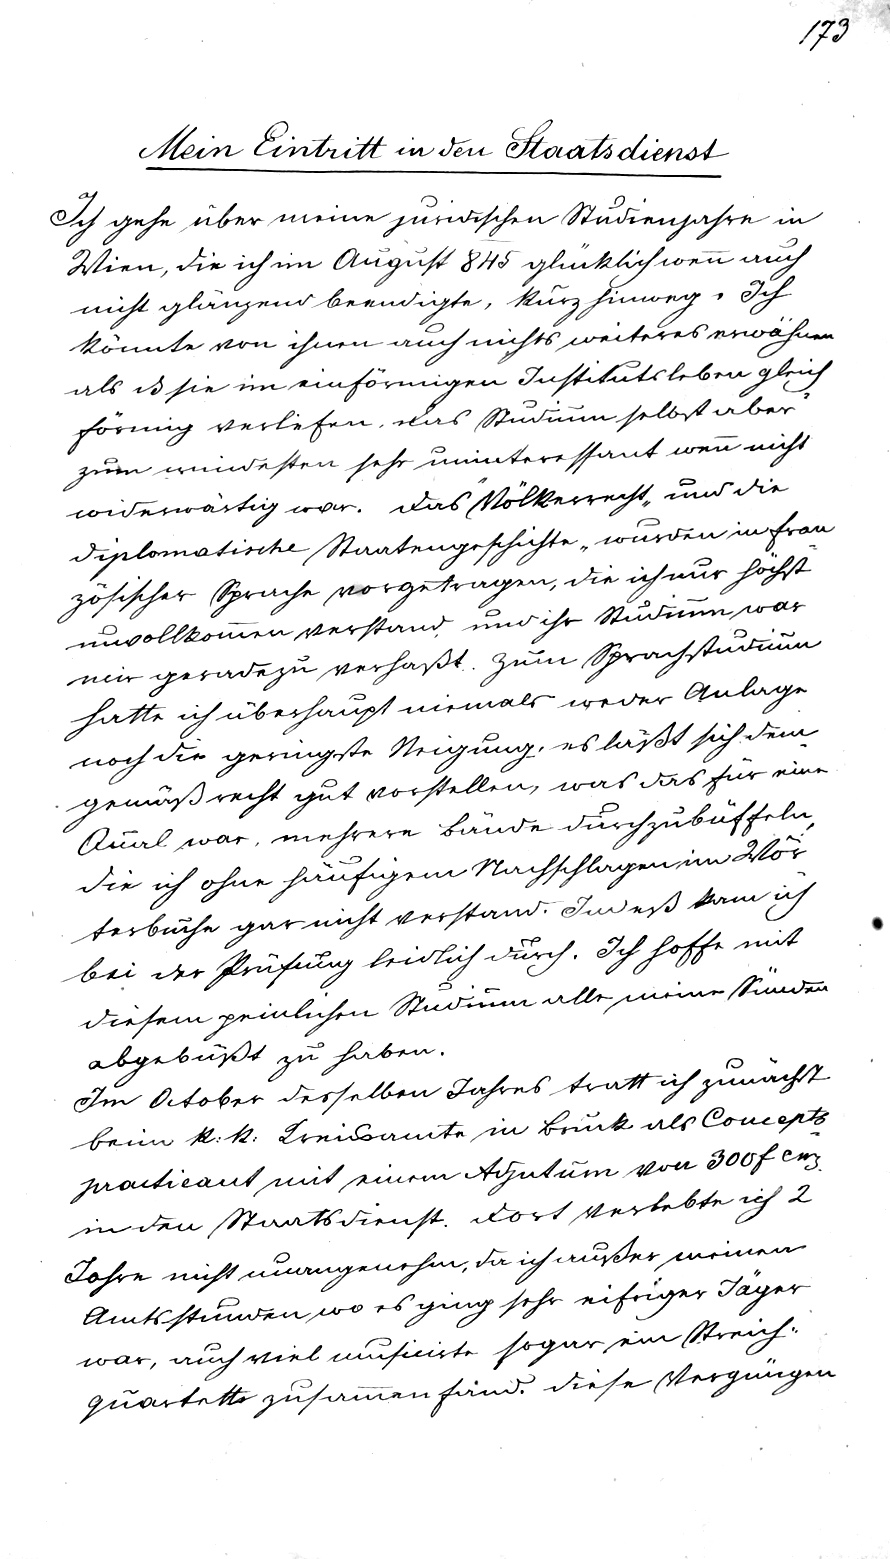 173
Mein Eintritt in den Staatsdienst
Ich gehe über meine juridischen Studienjahre in
Wien, die ich im August 845 glücklich weñ auch
nicht glänzend beendigte, kurz hinweg. Ich
könnte von ihnen auch nichts weiteres erwähnen
als ß sie im einförmigen Institutsleben gleich
förmig verliefen. das Studium selbst aber
zum mindesten sehr uninteressant weñ nicht
widerwärtig war. Das "Völkerrecht" und die
diplomatische Staatengeschichte" wurden in fran
zösischer Sprache vorgetragen, die ich nur höchst
unvollkom̄en verstand, und ihr Studium war
mir geradezu verhaßt. Zum Sprachstudium
hatte ich überhaupt niemals weder Anlage
noch die geringste Neigung. es läßt sich dem
gemäß recht gut vorstellen, was das für eine
Qual war, mehrere Bände durchzubüffeln,
die ich ohne häufigem Nachschlagen im Wör
terbuche gar nicht verstand. Indeß kam ich
bei der Prüfung leidlich durch. Ich hoffe mit
diesem peinlichen Studium alle meine Sünden
abgebüßt zu haben.
Im October desselben Jahres tratt ich zunächst
beim k: k: Kreisamte in Bruck als Concepts
practicant mit einem Adjutum von 300f Cmz.
in den Staatsdienst. Dort verlebte ich 2
Jahre nicht unangenehm, da ich außer meinen
Amtsstunden wo es ging sehr eifriger Jäger
war, auch viel musicirte sogar ein Streich-
quartett zusam̄en fand. diese Vergnügen